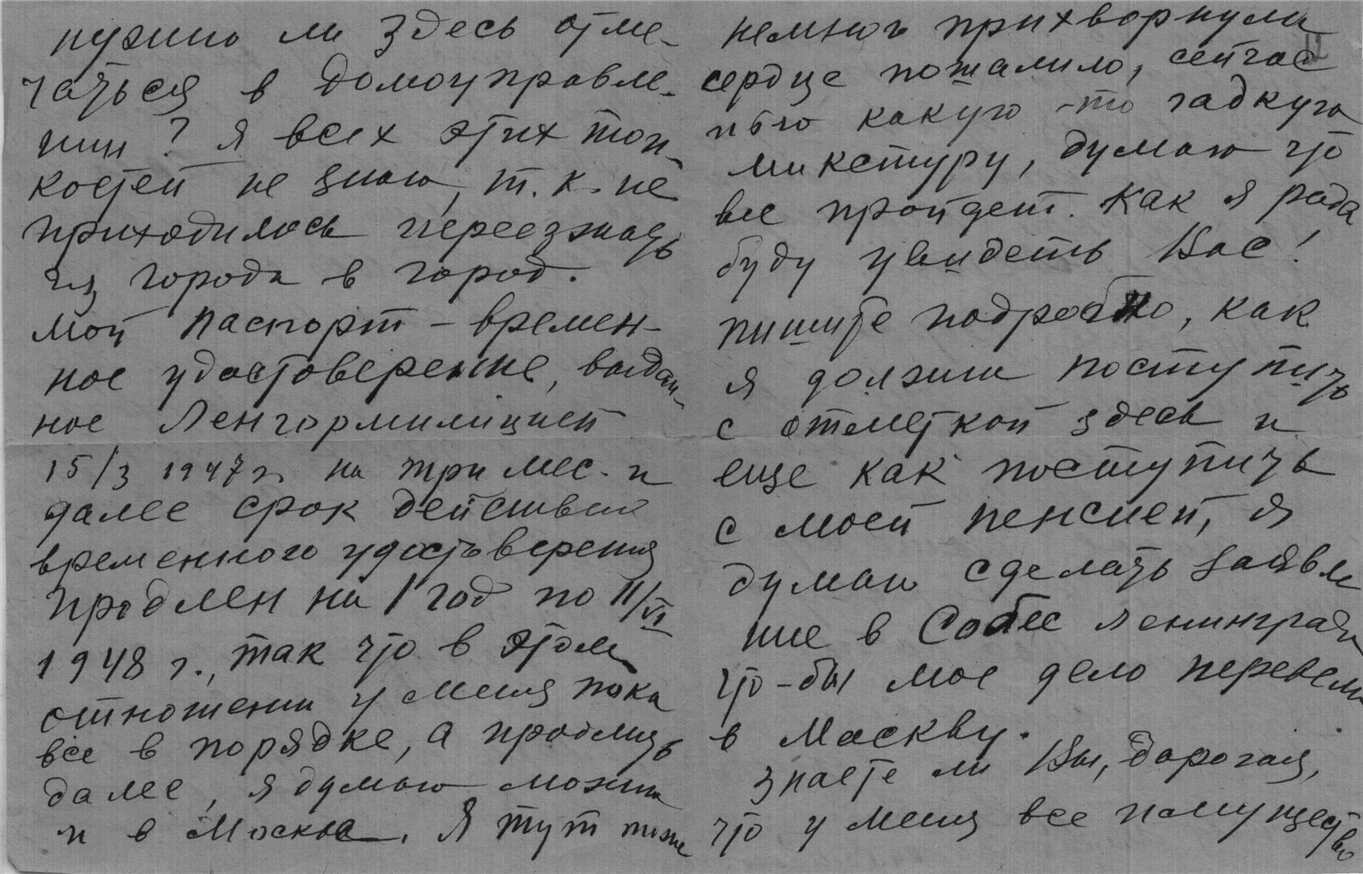 нужно ли здесь отме-
чаться в домоуправле-
нии? Я всех этих тон-
костей не знаю, т.к. не
приходилось переезжать
из города в город.
Мой паспорт - времен-
ное удостоверение, выдан-
ное Ленгормилицией
15/3 1947 г. на три мес. и
далее срок действия
временного удостоверения
продлен на 1 год по 11/VI
1948 г., так что в этом
отношении у меня пока
все в порядке, а продлить
далее, я думаю можно
и в Москве. Я тут тоже
II
немного прихворнула
сердце пошалило, сейчас
пью какую-то гадкую
микстуру, думаю что
все пройдет. Как я рада
буду увидеть Вас!
Пишите подробно, как
я должна поступить
с отметкой здесь и
еще как поступить
с моей пенсией, я
думаю сделать заявле
ние в Собес Ленинграда
что-бы мое дело перевели
в Москву.
Знаете ли Вы, дорогая,
что у меня все имущество